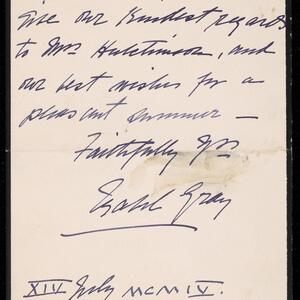 Give our kindest regards
to Mrs Hutchinson, and
our best wishes for a
pleasant summer —
Faithfully Yrs
Gray
XIV July MCMIV.